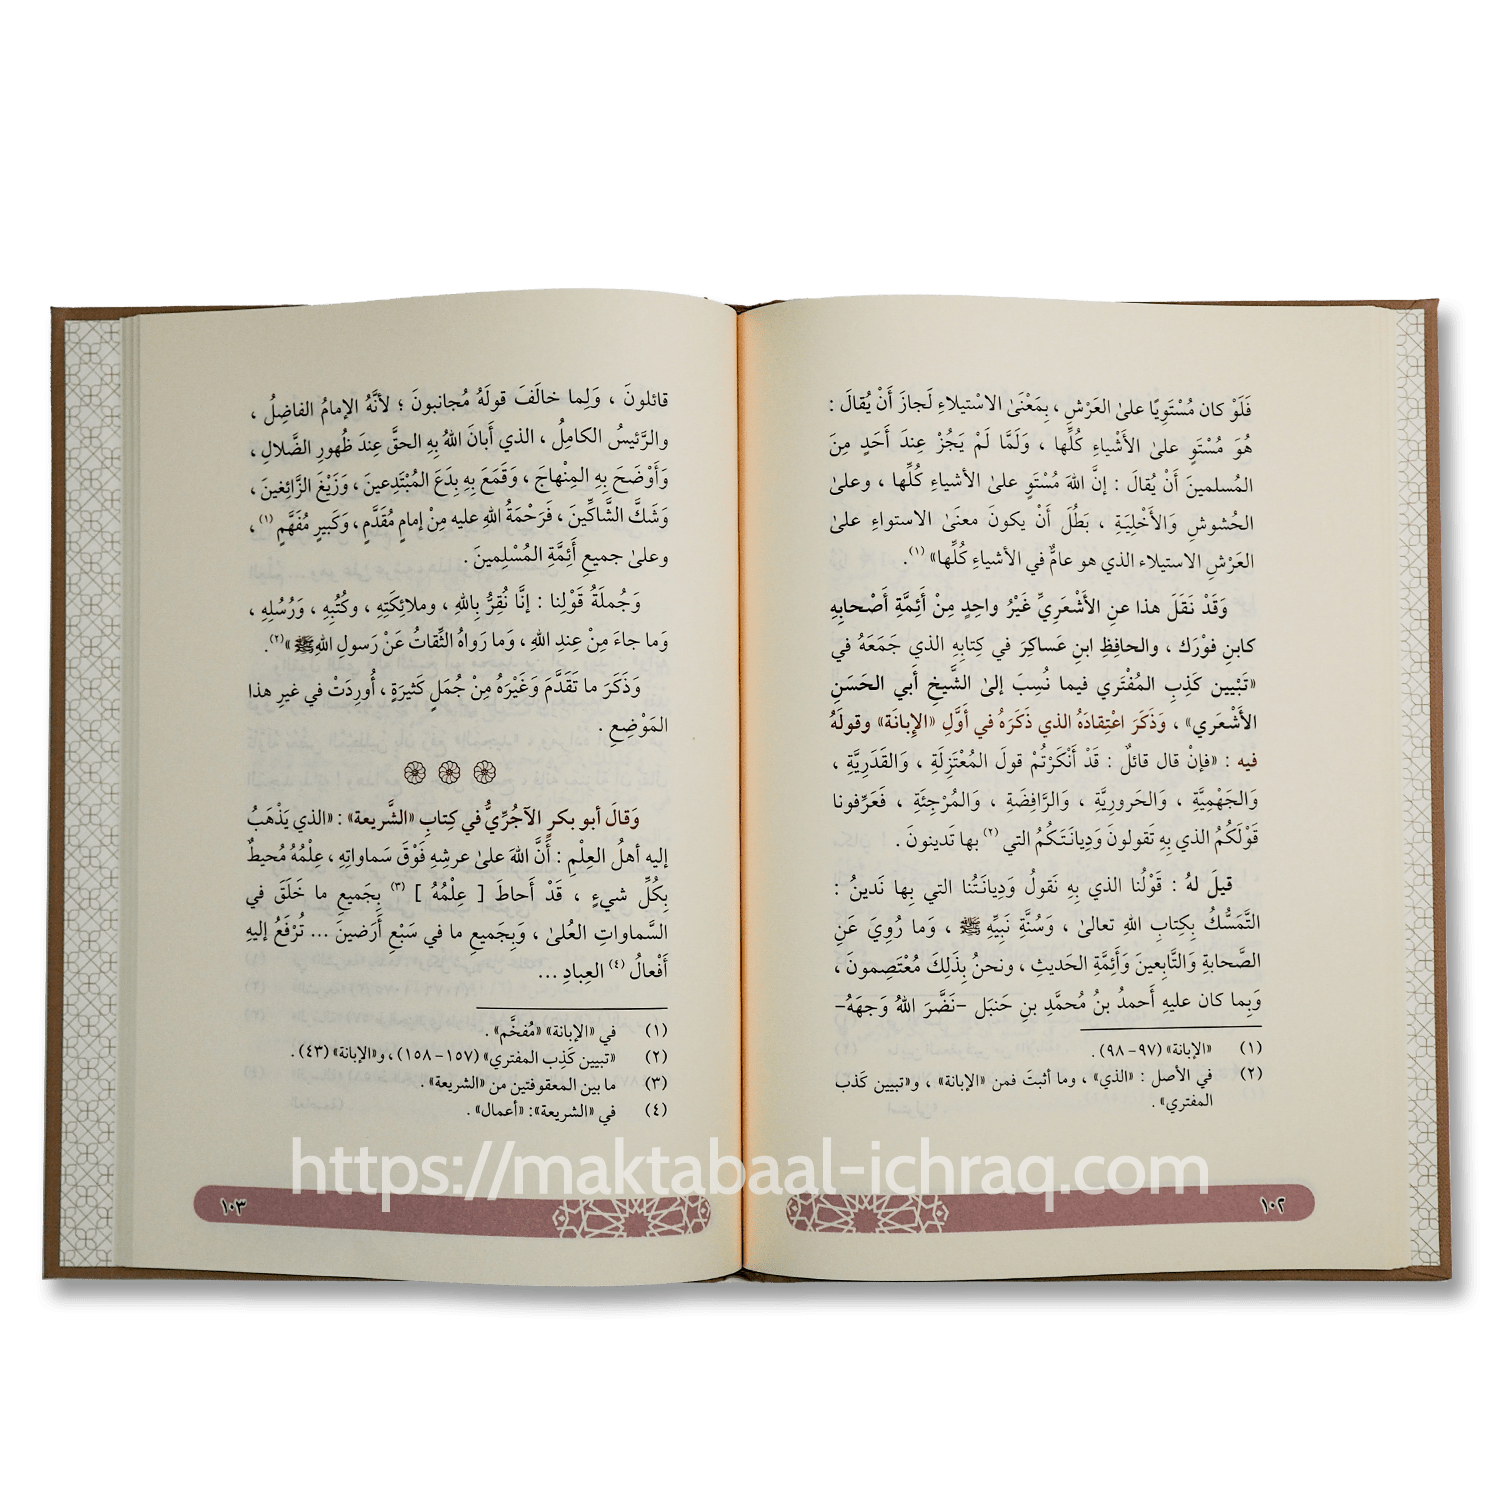 فَلَوْ كان مُسْتَوِيًا علىٰ العَرْشِ ، بِمَعْنَىٰ الاسْتيلاءِ لَجازَ أَنْ يُقالَ :
هُوَ مُسْتَوٍ علىٰ الأَشْياءِ كُلِّها ، وَلَمَّا لَمْ يَجُزْ عِندَ أَحَدٍ مِنَ
المُسلمينَ أَنْ يُقالَ : إنَّ اللهَ مُسْتَوٍ علىٰ الأشياءِ كُلِّها ، وعلىٰ
الحُشوشِ وَالأَخْلِيَةِ ، بَطُلَ أَنْ يكونَ معنَىٰ الاستواءِ علىٰ
العَرْشِ الاستيلاء الذي هو عامٌّ في الأشياءِ كُلِّها» (١).
وَقَدْ نَقَلَ هذا عنِ الأَشْعَرِيِّ غَيْرُ واحِدٍ مِنْ أَئِمَّةِ أَصْحابِهِ
كابنِ فوْرَك ، والحافِظِ ابنِ عَساكِرَ في كِتابِهِ الذي جَمَعَهُ في
«تَبْيين كَذِبِ المُفْتَري فيما نُسِبَ إلىٰ الشَّيخِ أَبي الحَسَنِ
الأَشْعَري» ، وَذَكَرَ اعْتِقادَهُ الذي ذَكَرَهُ في أَوَّلِ «الإِبانَة» وقولَهُ
فيه : «فإنْ قال قائلٌ : قَدْ أَنْكَرْتُمْ قولَ المُعْتَزِلَةِ ، وَالقَدَرِيَّةِ ،
وَالجَهْمِيَّةِ ، وَالحَرورِيَّةِ ، وَالرَّافِضَةِ ، وَالمُرْجِئَةِ ، فَعَرِّفونا
قَوْلَكُمُ الذي بِهِ تَقولونَ وَدِيانَتَكُمُ التي (٢) بها تَدينونَ .
قيلَ لهُ : قَوْلُنا الذي بِهِ نَقولُ وَدِيانَتُنا التي بِها نَدينُ :
التَّمَسُّكُ بِكتابِ اللهِ تعالىٰ ، وَسُنَّةِ نَبِيِّهِ ﷺ ، وَما رُوِيَ عَنِ
الصَّحابةِ وَالتَّابِعينَ وَأَئِمَّةِ الحَديثِ ، ونحنُ بِذَلِكَ مُعْتَصِمونَ ،
وَبِما كان عليهِ أَحمدُ بنُ مُحمَّدِ بنِ حَنبَل -نَضَّرَ اللهُ وَجهَهُ-
(١) «الإبانة» (٩٧-٩٨) .
(٢) في الأصل : «الذي» ، وما أثبتَ فمن «الإبانة» ، و«تبيين كَذب
المفتري» .
١٠٢
قائلونَ ، وَلِما خالَفَ قولَهُ مُجانبونَ ؛ لأنَّهُ الإمامُ الفاضِلُ ،
والرَّئيسُ الكامِلُ ، الذي أَبانَ اللهُ بِهِ الحقَّ عِندَ ظُهورِ الضَّلالِ ،
وَأَوْضَحَ بِهِ المِنْهاجَ ، وَقَمَعَ بِهِ بِدَعَ المُبْتَدِعينَ ، وَزَيْغَ الزَّائِغينَ ،
وَشَكَّ الشَّاكِّينَ ، فَرَحْمَةُ اللهِ عليه مِنْ إمامٍ مُقَدَّمٍ ، وَكَبيرٍ مُفَهَّمٍ (١) ،
وعلىٰ جميعِ أَئِمَّةِ المُسْلِمينَ .
وَجُملَةُ قَوْلِنا : إنَّا نُقِرُّ بِاللهِ ، وملائِكَتِهِ ، وكُتُبِهِ ، وَرُسُلِهِ ،
وَما جاءَ مِنْ عِندِ اللهِ ، وَما رَواهُ الثِّقاتُ عَنْ رَسولِ اللهِ ﷺ» (٢).
وَذَكَرَ ما تَقَدَّمَ وَغَيْرَهُ مِنْ جُمَلٍ كَثيرَةٍ ، أُورِدَتْ في غيرِ هذا
المَوْضِعِ .
وَقالَ أبو بكرٍ الآجُرِّيُّ في كِتابِ «الشَّريعة» : «الذي يَذْهَبُ
إليه أهلُ العِلْمِ : أَنَّ اللهَ علىٰ عرشِهِ فَوْقَ سَماواتِهِ ، عِلْمُهُ مُحيطٌ
بِكُلِّ شيءٍ ، قَدْ أَحاطَ [ عِلْمُهُ ] (٣) بِجَميعِ ما خَلَقَ في
السَّماواتِ العُلىٰ ، وَبِجَميعِ ما في سَبْعِ أَرَضينَ ... تُرْفَعُ إليهِ
أَفْعالُ (٤) العِبادِ ...
(١) في «الإبانة» «مُفخَّم» .
(٢) «تبيين كَذِب المفتري» (١٥٧-١٥٨) ، و«الإبانة» (٤٣) .
(٣) ما بين المعقوفتين من «الشريعة» .
(٤) في «الشريعة» : «أعمال» .
١٠٣
https://maktabaal-ichraq.com